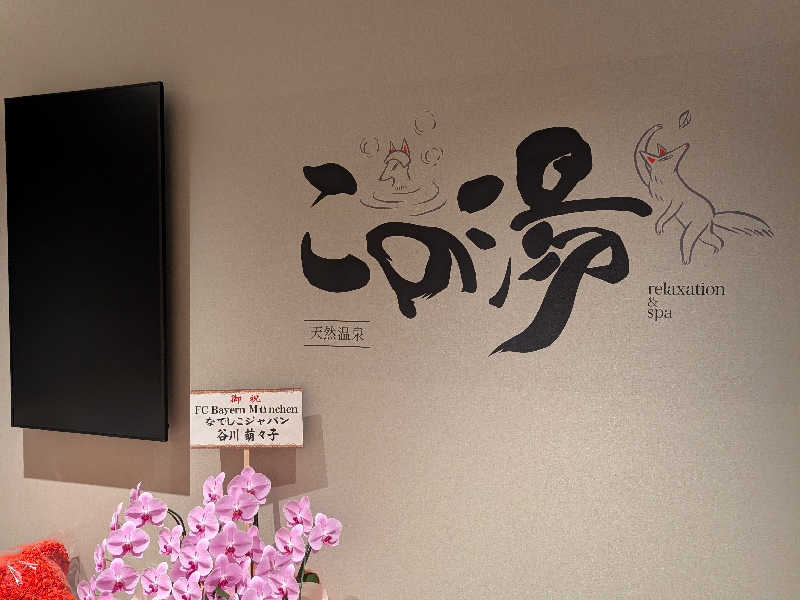 この湯
relaxation
&
spa
天然温泉
御祝
FC Bayern München
なでしこジャパン
谷川 萌々子